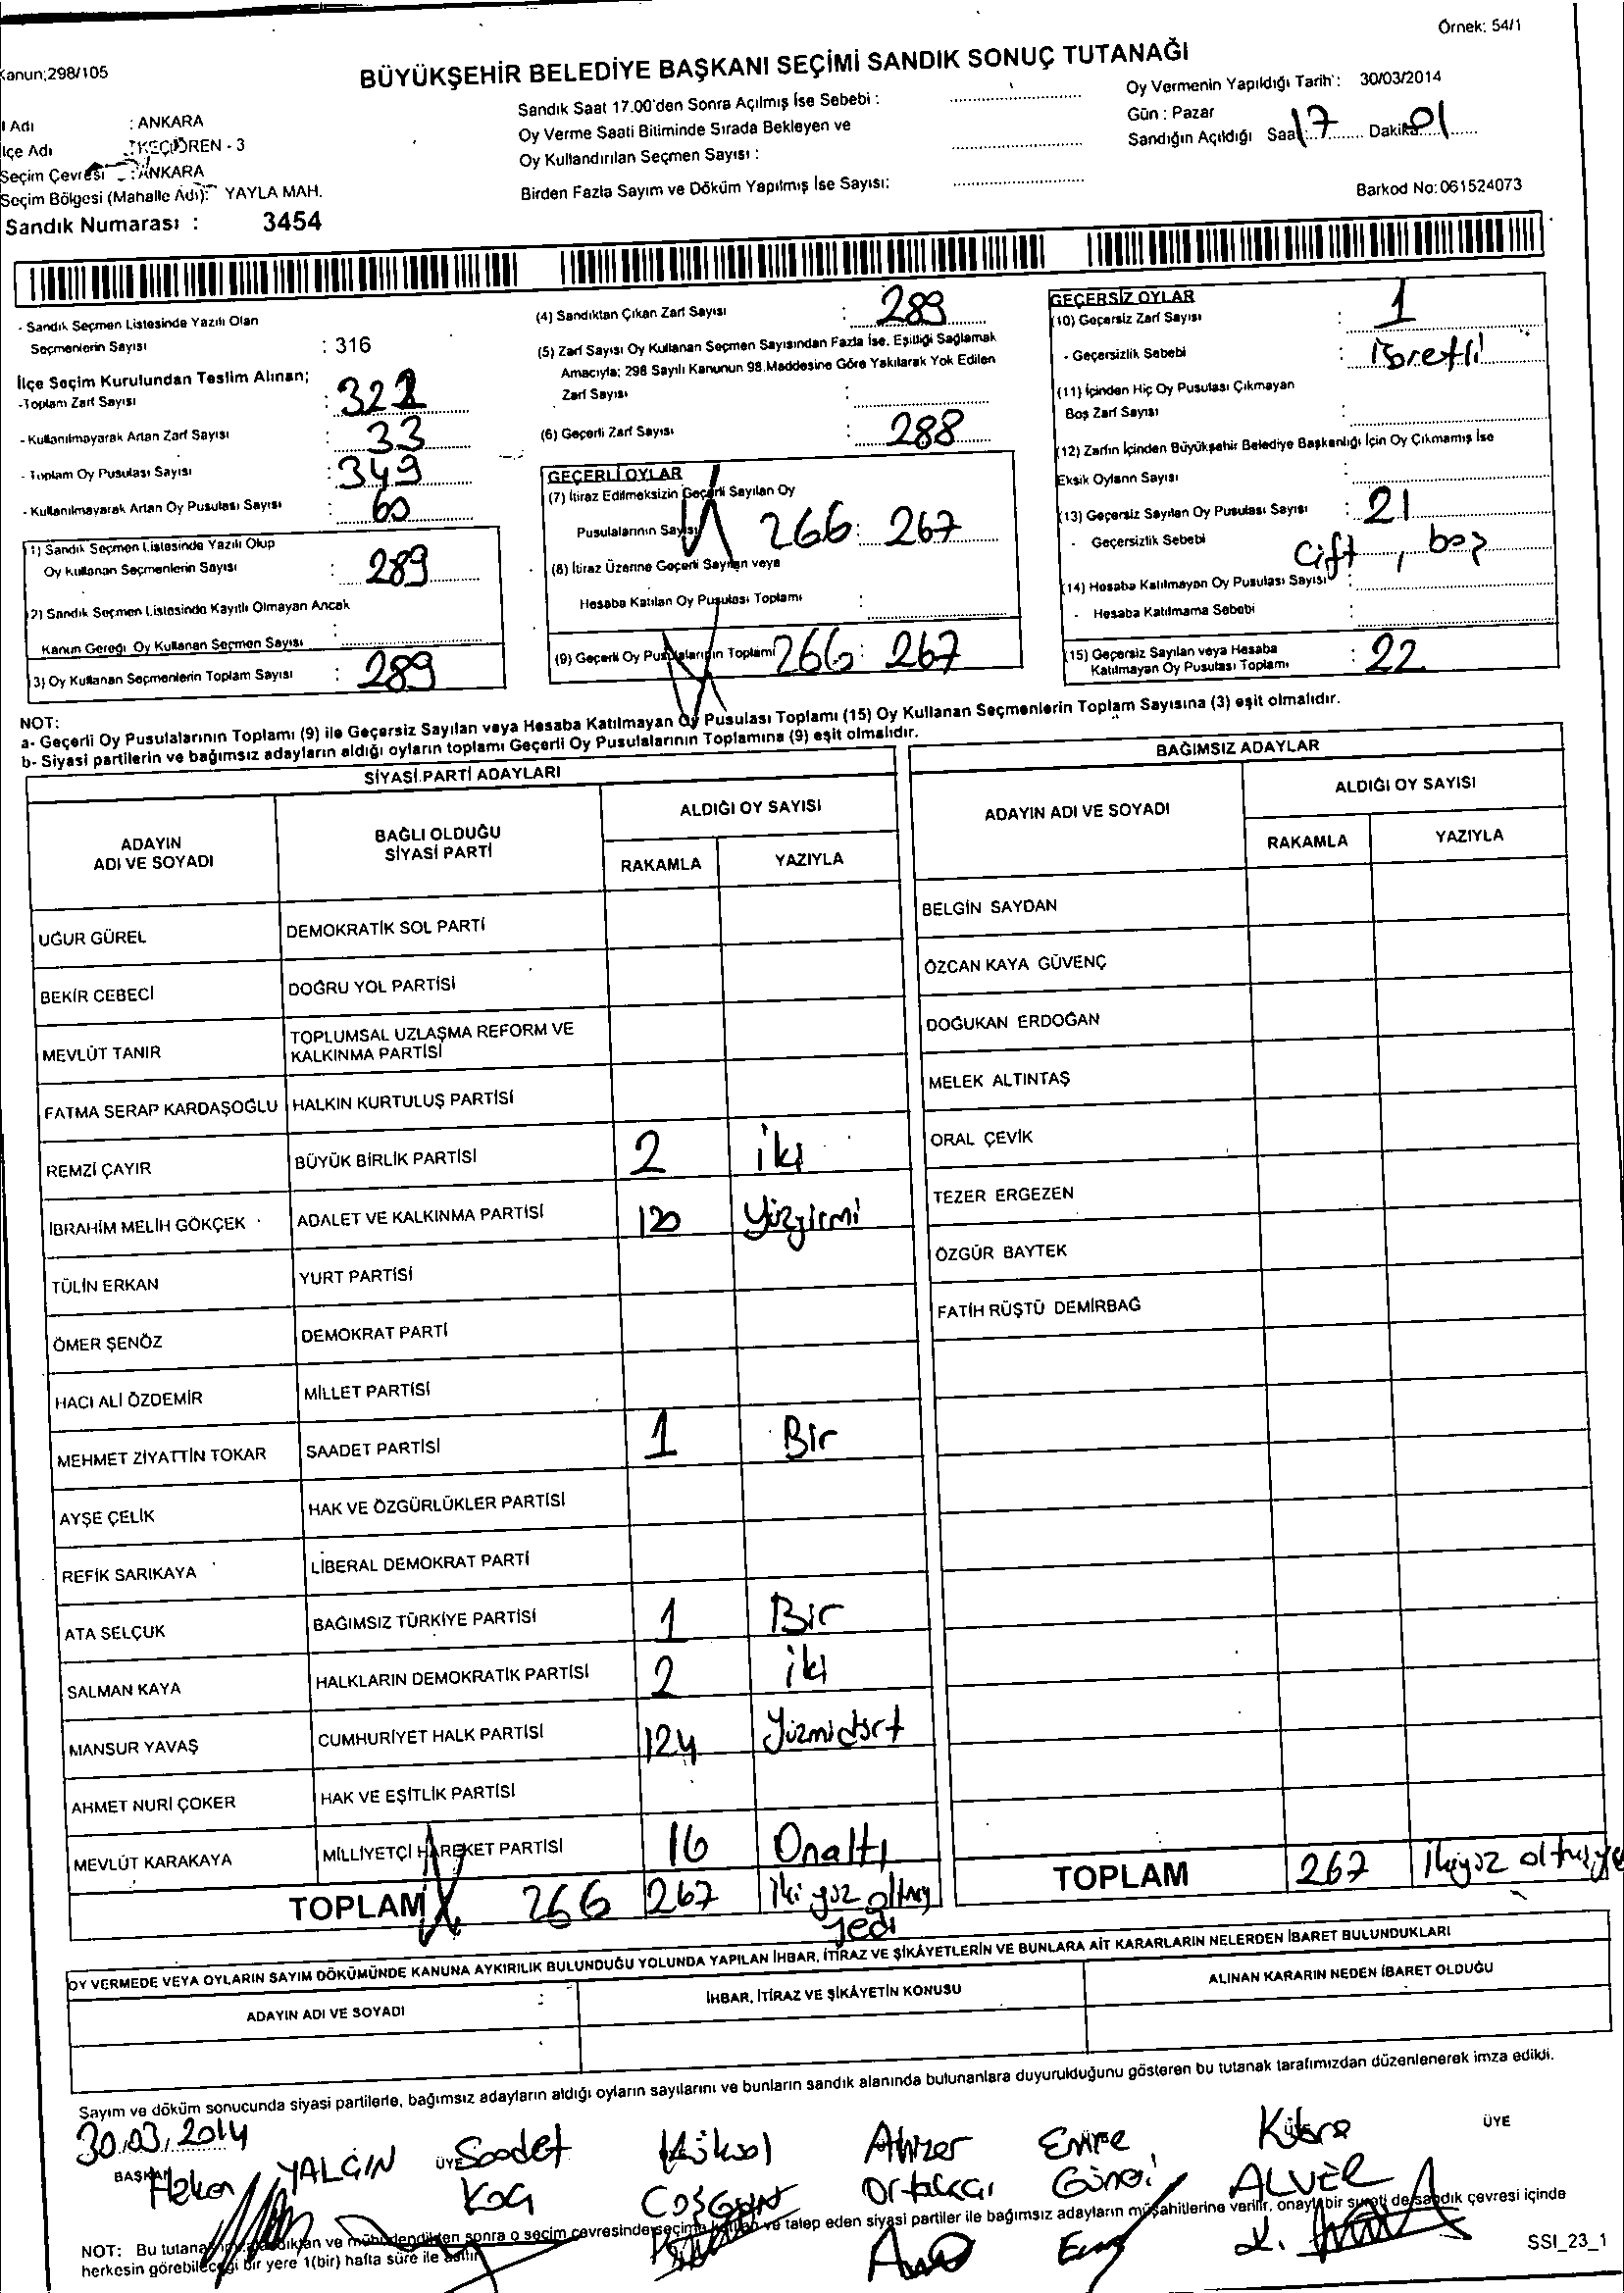 Örnek: 54/1
Kanun;298/105
BÜYÜKŞEHİR BELEDİYE BAŞKANI SEÇİMİ SANDIK SONUÇ TUTANAĞI
l Adı : ANKARA
lçe Adı : KEÇİÖREN - 3
Seçim Çevresi : ANKARA
Seçim Bölgesi (Mahalle Adı): YAYLA MAH.
Sandık Numarası : 3454
Sandık Saat 17.00'den Sonra Açılmış İse Sebebi :
Oy Verme Saati Bitiminde Sırada Bekleyen ve
Oy Kullandırılan Seçmen Sayısı :
Birden Fazla Sayım ve Döküm Yapılmış İse Sayısı:
Oy Vermenin Yapıldığı Tarih : 30/03/2014
Gün : Pazar
Sandığın Açıldığı Saat: 17 Dakika 01
Barkod No: 061524073
- Sandık Seçmen Listesinde Yazılı Olan
Seçmenlerin Sayısı : 316
İlçe Seçim Kurulundan Teslim Alınan;
-Toplam Zarf Sayısı : 322
- Kullanılmayarak Artan Zarf Sayısı : 33
- Toplam Oy Pusulası Sayısı : 349
- Kullanılmayarak Artan Oy Pusulası Sayısı : 60
(1) Sandık Seçmen Listesinde Yazılı Olup
Oy Kullanan Seçmenlerin Sayısı : 289
(2) Sandık Seçmen Listesinde Kayıtlı Olmayan Ancak
Kanun Gereği Oy Kullanan Seçmen Sayısı :
(3) Oy Kullanan Seçmenlerin Toplam Sayısı : 289
(4) Sandıktan Çıkan Zarf Sayısı : 289
(5) Zarf Sayısı Oy Kullanan Seçmen Sayısından Fazla İse, Eşitliği Sağlamak
Amacıyla; 298 Sayılı Kanunun 98.Maddesine Göre Yakılarak Yok Edilen
Zarf Sayısı :
(6) Geçerli Zarf Sayısı : 288
GEÇERLİ OYLAR
(7) İtiraz Edilmeksizin Geçerli Sayılan Oy
Pusulalarının Sayısı 266 : 267
(8) İtiraz Üzerine Geçerli Sayılan veya
Hesaba Katılan Oy Pusulası Toplamı :
(9) Geçerli Oy Pusulalarının Toplamı 266 : 267
GEÇERSİZ OYLAR
(10) Geçersiz Zarf Sayısı : 1
- Geçersizlik Sebebi : işretli
(11) İçinden Hiç Oy Pusulası Çıkmayan
Boş Zarf Sayısı :
(12) Zarfın İçinden Büyükşehir Belediye Başkanlığı İçin Oy Çıkmamış İse
Eksik Oyların Sayısı :
(13) Geçersiz Sayılan Oy Pusulası Sayısı : 21
- Geçersizlik Sebebi Çift , boş
(14) Hesaba Katılmayan Oy Pusulası Sayısı :
- Hesaba Katılmama Sebebi :
(15) Geçersiz Sayılan veya Hesaba
Katılmayan Oy Pusulası Toplamı : 22
NOT:
a- Geçerli Oy Pusulalarının Toplamı (9) ile Geçersiz Sayılan veya Hesaba Katılmayan Oy Pusulası Toplamı (15) Oy Kullanan Seçmenlerin Toplam Sayısına (3) eşit olmalıdır.
b- Siyasi partilerin ve bağımsız adayların aldığı oyların toplamı Geçerli Oy Pusulalarının Toplamına (9) eşit olmalıdır.
SİYASİ PARTİ ADAYLARI
ADAYIN ADI VE SOYADI BAĞLI OLDUĞU SİYASİ PARTİ ALDIĞI OY SAYISI
RAKAMLA YAZIYLA
UĞUR GÜREL DEMOKRATİK SOL PARTİ
BEKİR CEBECİ DOĞRU YOL PARTİSİ
MEVLÜT TANIR TOPLUMSAL UZLAŞMA REFORM VE KALKINMA PARTİSİ
FATMA SERAP KARDAŞOĞLU HALKIN KURTULUŞ PARTİSİ
REMZİ ÇAYIR BÜYÜK BİRLİK PARTİSİ 2 iki
İBRAHİM MELİH GÖKÇEK ADALET VE KALKINMA PARTİSİ 120 Yüzyirmi
TÜLİN ERKAN YURT PARTİSİ
ÖMER ŞENÖZ DEMOKRAT PARTİ
HACI ALİ ÖZDEMİR MİLLET PARTİSİ
MEHMET ZİYATTİN TOKAR SAADET PARTİSİ 1 Bir
AYŞE ÇELİK HAK VE ÖZGÜRLÜKLER PARTİSİ
REFİK SARIKAYA LİBERAL DEMOKRAT PARTİ
ATA SELÇUK BAĞIMSIZ TÜRKİYE PARTİSİ 1 Bir
SALMAN KAYA HALKLARIN DEMOKRATİK PARTİSİ 2 iki
MANSUR YAVAŞ CUMHURİYET HALK PARTİSİ 124 Yüzmidört
AHMET NURİ ÇOKER HAK VE EŞİTLİK PARTİSİ
MEVLÜT KARAKAYA MİLLİYETÇİ HAREKET PARTİSİ 16 Onaltı
TOPLAM 266 267 İki yüz altmış yedi
BAĞIMSIZ ADAYLAR
ADAYIN ADI VE SOYADI ALDIĞI OY SAYISI
RAKAMLA YAZIYLA
BELGİN SAYDAN
ÖZCAN KAYA GÜVENÇ
DOĞUKAN ERDOĞAN
MELEK ALTINTAŞ
ORAL ÇEVİK
TEZER ERGEZEN
ÖZGÜR BAYTEK
FATİH RÜŞTÜ DEMİRBAĞ
TOPLAM 267
OY VERMEDE VEYA OYLARIN SAYIM DÖKÜMÜNDE KANUNA AYKIRILIK BULUNDUĞU YOLUNDA YAPILAN İHBAR, İTİRAZ VE ŞİKÂYETLERİN VE BUNLARA AİT KARARLARIN NELERDEN İBARET BULUNDUKLARI
ADAYIN ADI VE SOYADI : İHBAR, İTİRAZ VE ŞİKÂYETİN KONUSU ALINAN KARARIN NEDEN İBARET OLDUĞU
Sayım ve döküm sonucunda siyasi partilerle, bağımsız adayların aldığı oyların sayılarını ve bunların sandık alanında bulunanlara duyurulduğunu gösteren bu tutanak tarafımızdan düzenlenerek imza edildi.
30.03.2014
BAŞKAN Hakan YALÇIN
ÜYE Saadet KOÇ
Köksal COŞGUN
Emre Günei
Kübra ALVER
ÜYE
NOT: Bu tutanak ve mühürlendikten sonra o seçim çevresinde seçime katılan ve talep eden siyasi partiler ile bağımsız adayların müşahitlerine verilir, onaylı bir sureti de sandık çevresi içinde
herkesin görebileceği bir yere 1(bir) hafta süre ile asılır.
SSI_23_1